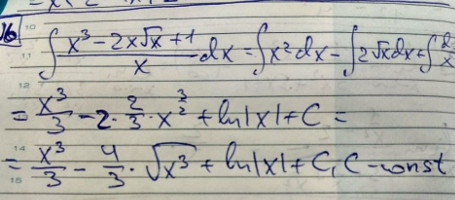 16 ∫ (x³ - 2x√x + 1)/x dx = ∫x² dx - ∫2√x dx + ∫ d/x
= x³/3 - 2 · 2/3 · x^(3/2) + ln|x| + C =
= x³/3 - 4/3 · √x³ + ln|x| + C, C - const